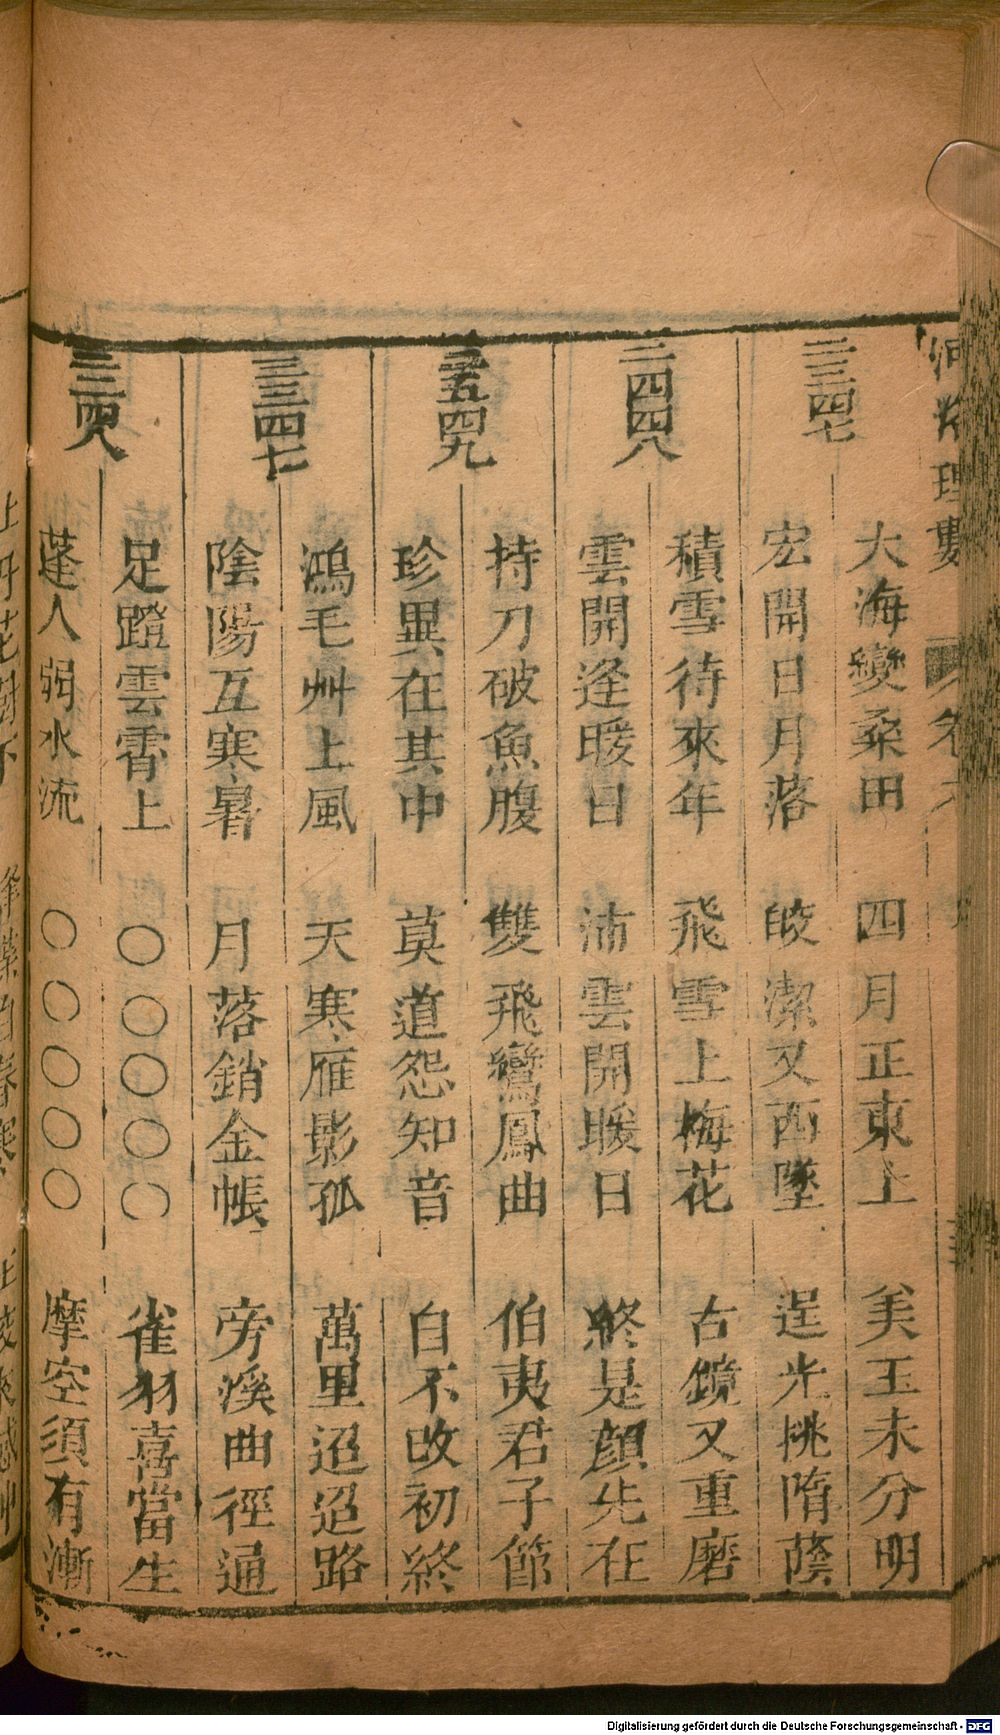 河洛理數 卷六
二三四七
大海變桑田 四月正東上 美玉未分明
宏開日月落 皎潔又西墜 逞光挑隋蔭
二四四八
積雪待來年 飛雪上梅花 古鏡又重磨
雲開逢暖日 沛雲開暖日 終是顔先在
三五四九
持刀破魚腹 雙飛鸞鳳曲 伯夷君子節
珍異在其中 莫道怨知音 白不改初終
三三四七
鴻毛艸上風 天寒雁影孤 萬里迢迢路
陰陽互寒暑 月落銷金帳 旁溪曲徑通
三三四八
足蹬雲霄上 〇〇〇〇〇 雀羽喜當生
蓬人弱水流 〇〇〇〇〇 摩空須有漸
Digitalisierung gefördert durch die Deutsche Forschungsgemeinschaft - DFG